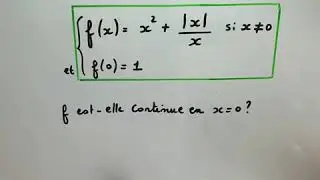 f(x) = x² + |x|/x si x≠0
et f(0) = 1
f est-elle continue en x=0 ?